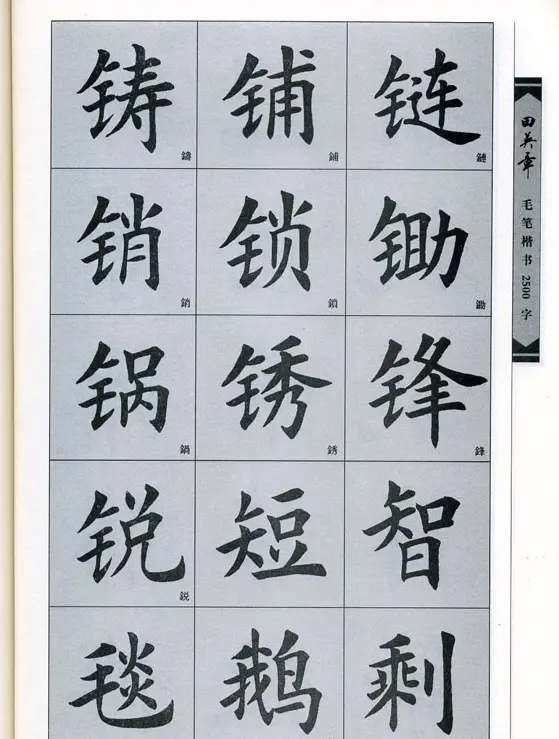 铸 鑄 铺 鋪 链 鏈
销 銷 锁 鎖 锄 鋤
锅 鍋 锈 銹 锋 鋒
锐 鋭 短 智
毯 鹅 剩
田英章 毛笔楷书 2500 字